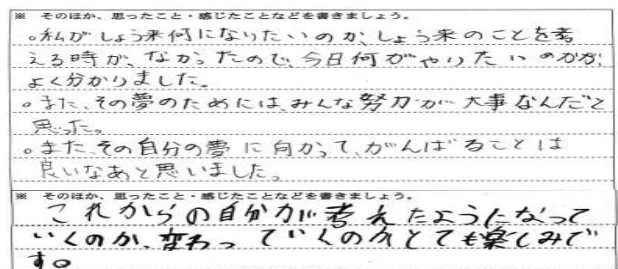 ※ そのほか、思ったこと・感じたことなどを書きましょう。
。私がしょう来何になりたいのか、しょう来のことを考
える時が、なかったので、今日何がやりたいのかが、
よく分かりました。
。また、その夢のためには、みんな努力が大事なんだと
思った。
。また、その自分の夢に向かって、がんばることは
良いなあと思いました。
※ そのほか、思ったこと・感じたことなどを書きましょう。
これからの自分が考えたようになって
いくのか、変わっていくのかとても楽しみで
す。